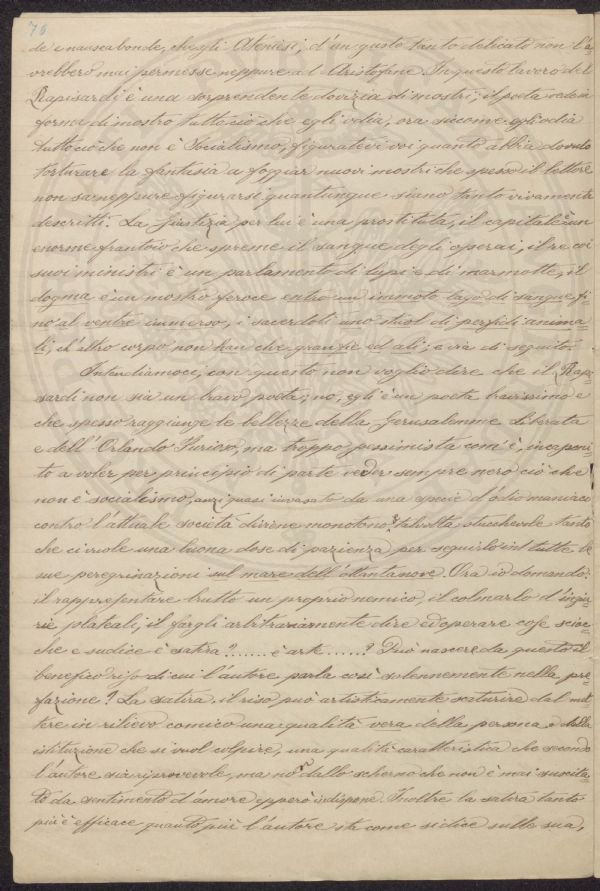 76
de e nauseabonde, che gli Ateniesi, d'un gusto tanto delicato non l'a
vrebbero mai permesse neppure al Aristofane. In questo lavoro del
Rapisardi è una sorprendente dovizia di mostri; il poeta vede in
forma di mostro tutto ciò che egli odia, ora siccome egli odia
tutto ciò che non è Socialismo, figuratevi voi quanto abbia dovuto
torturare la fantasia a foggiar nuovi mostri che spesso il lettore
non sa neppure figurarsi quantunque siano tanto vivamente
descritti. La giustizia per lui è una prostituta, il capitale è un
enorme frantoio che spreme il sangue degli operai, il re coi
suoi ministri è un parlamento di lupi e di marmotte, il
dogma è un mostro feroce entro un immoto lago di sangue fi=
no al ventre immerso, i sacerdoti uno stuol di perfidi anima=
li, ch'altro corpo non han che granfie ed ali; e via di seguito.
Intendiamoce, con questo non voglio dire che il Rapi=
sardi non sia un bravo poeta; no, egli è un poeta bravissimo e
che spesso raggiunge le bellezze della Gerusalemme Liberata
e dell'Orlando Furioso, ma troppo pessimista com'è, incaponi=
to a voler per principio di parte veder sempre nero ciò che
non è socialismo, anzi quasi invasato da una specie d'odio maniaco
contro l'attuale società diviene monotono, e talvolta stucchevole tanto
che ci vuole una buona dose di pazienza per seguirlo in tutte le
sue peregrinazioni sul mare dell'ottantanove. Ora io domando:
il rappresentare brutto un proprio nemico, il colmarlo d'ingiu=
rie plateali, il fargli arbitrariamente dire ed operare cose scioc=
che e sudice è satira?...... è arte.....? Può nascere da questo il
benefico riso di cui l'autore parla così solennemente nella pre=
fazione? La satira, il riso può artisticamente scaturire dal met
tere in rilievo comico una qualità vera della persona o della
istituzione che si vuol colpire, una qualità caratteristica che secondo
l'autore sia riprovevole, ma non dallo scherno che non è mai suscita=
to da sentimento d'amore epperò indispone. Inoltre la satira tanto
più è efficace quanto più l'autore sta come si dice sulle sua,